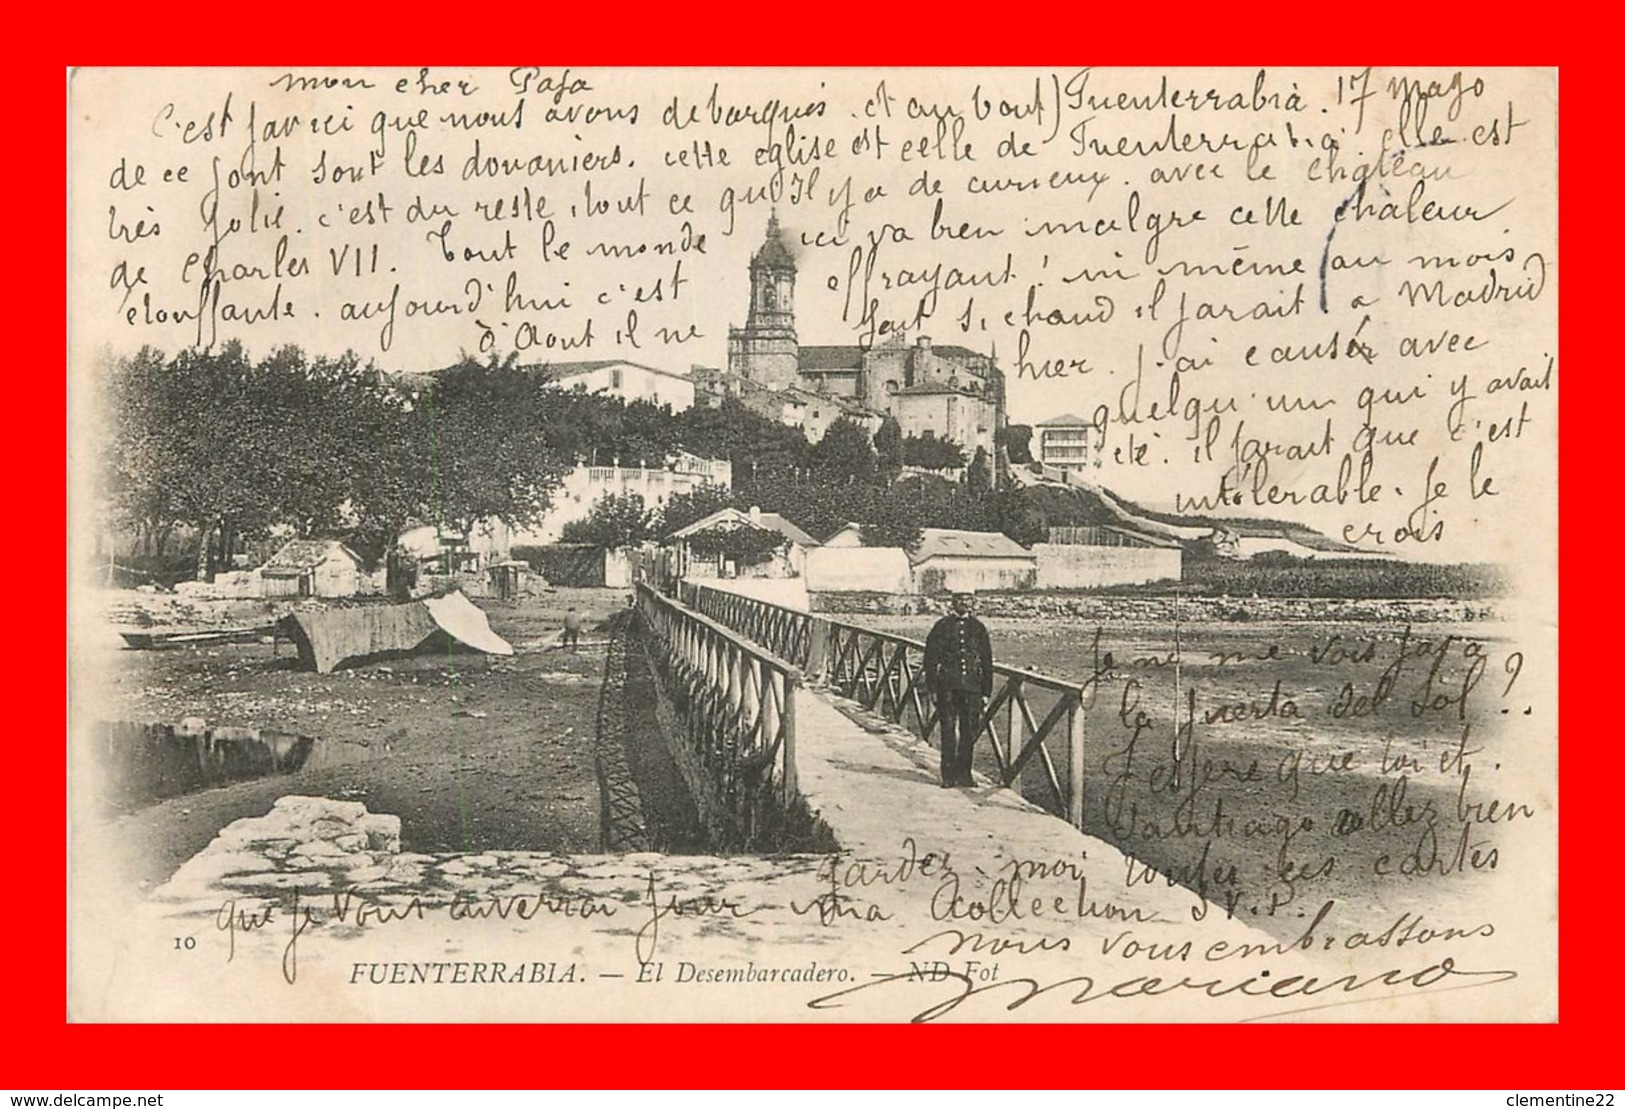 mon cher Papa
Fuenterrabia. 17 Mayo
C'est par ici que nous avons debarqués. et au bout)
de ce pont sont les douaniers. cette eglise est celle de Fuenterrabia. elle est
très jolie. c'est du reste, tout ce qu'Il y a de curieux. avec le chateau
de Charles VII. Tout le monde ici va bien malgre cette chaleur
etouffante. aujourd'hui c'est effrayant! ni même au mois
d'Aout il ne fait si chaud il parait a Madrid
hier. J'ai causé avec
quelqu'un qui y avait
été. il parait que c'est
intolerable. Je le
crois
Je ne me vois pas a
la puerta del Sol?!
J'espere que toi et
Santiago allez bien
gardez-moi toutes ces cartes
que je vous enverrai pour ma Collection S.V.P.
nous vous embrassons
Mariano
10
FUENTERRABIA. — El Desembarcadero. — ND Fot
www.delcampe.net
clementine22